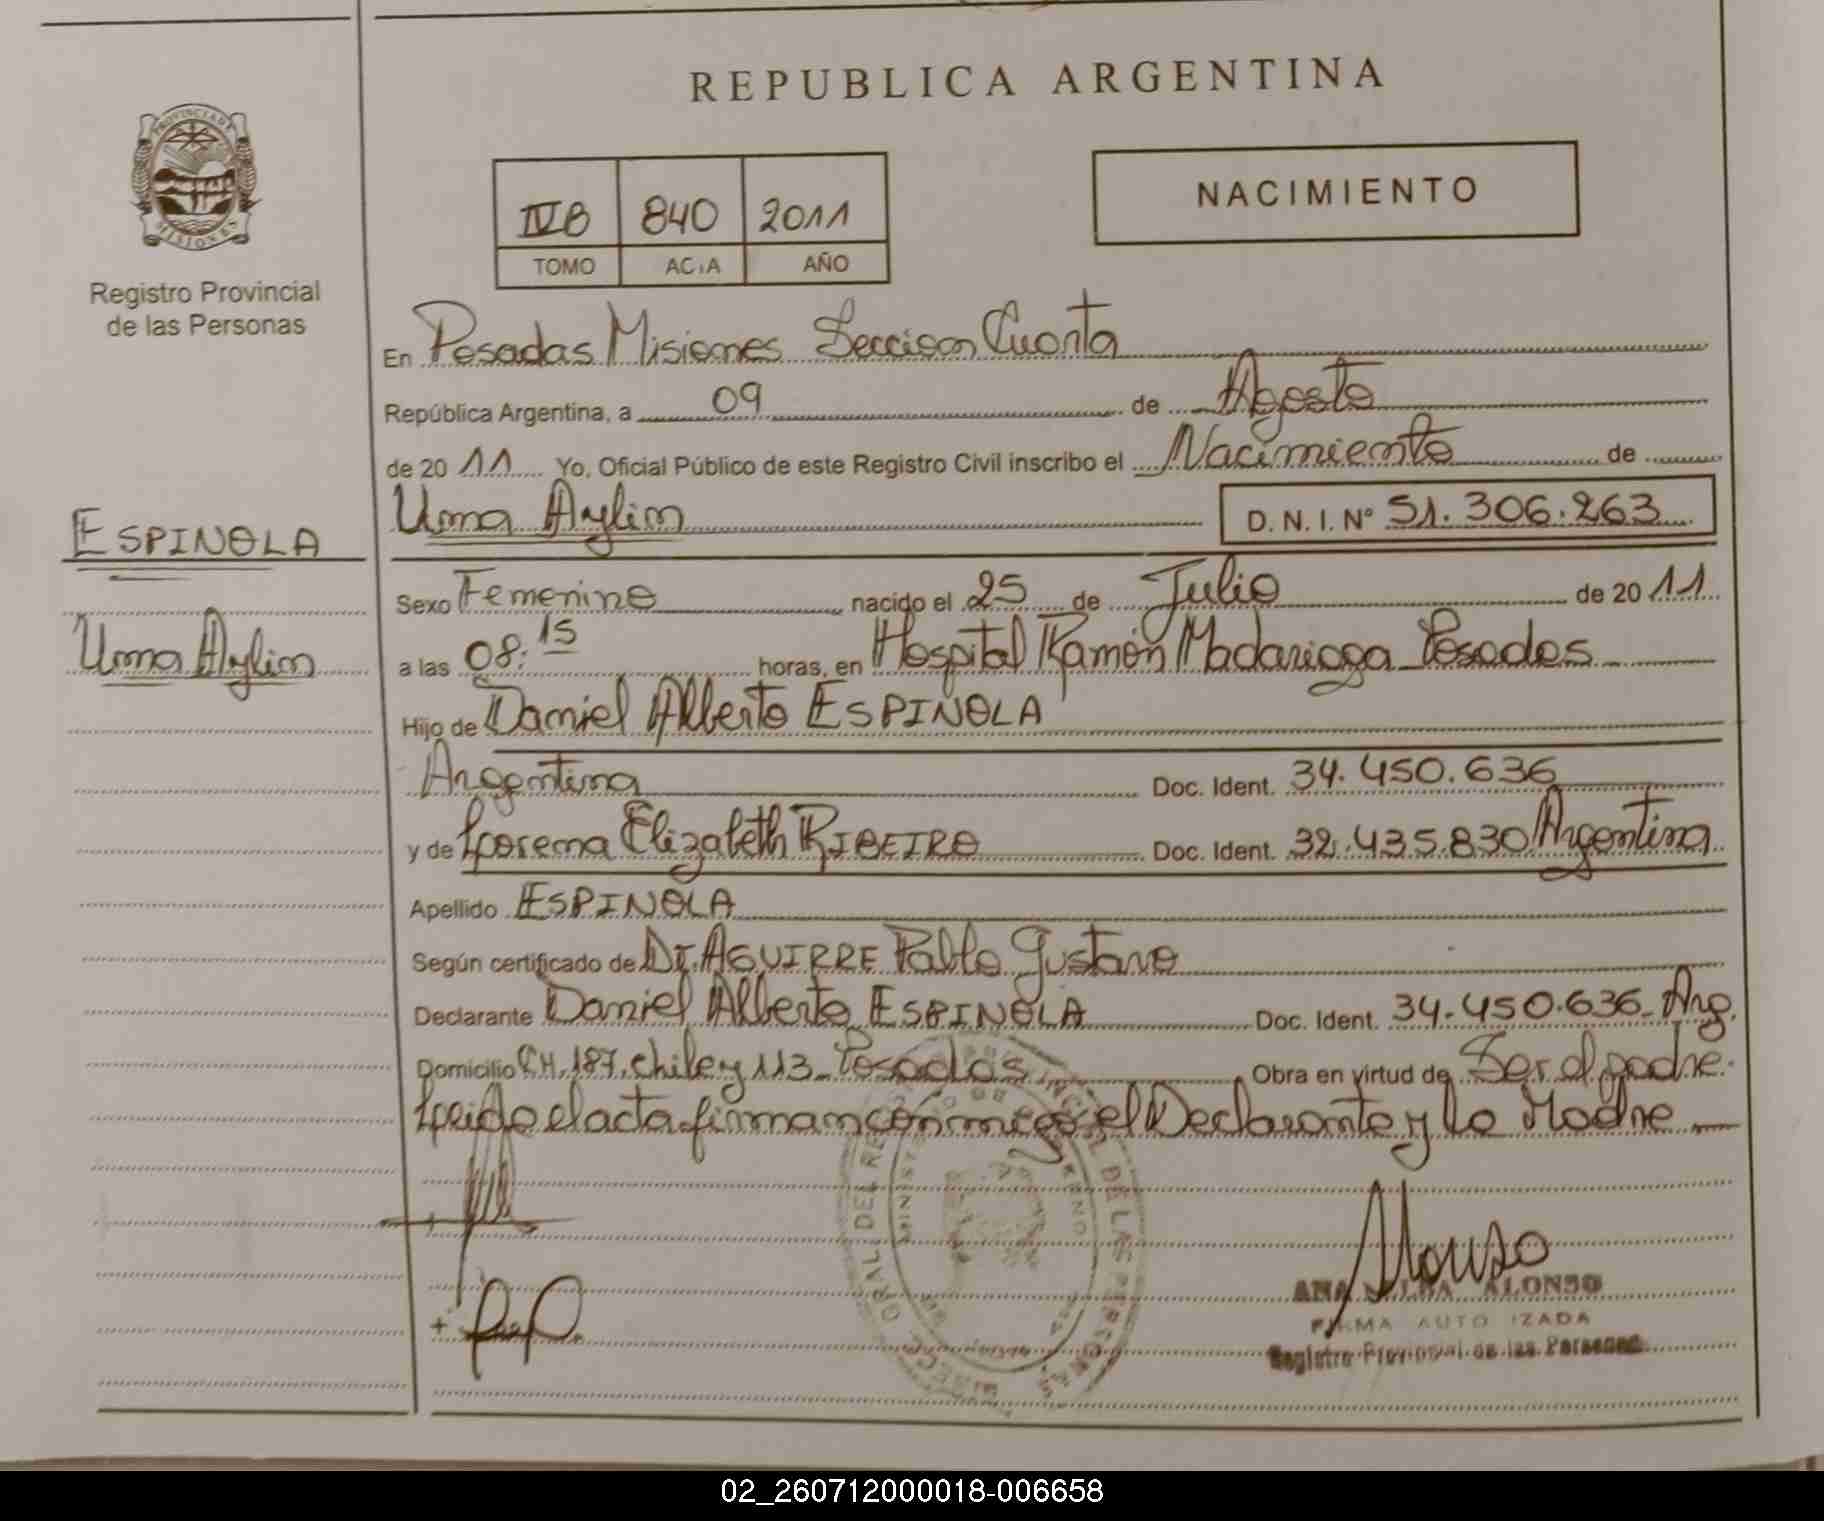 REPUBLICA ARGENTINA
PROVINCIA DE MISIONES
Registro Provincial
de las Personas
IVB 840 2011
TOMO ACTA AÑO
NACIMIENTO
En Posadas Misiones Seccion Cuarta
República Argentina, a 09 de Agosto
de 2011 Yo, Oficial Público de este Registro Civil inscribo el Nacimiento de
Uma Aylin D. N. I. Nº 51.306.263
ESPINOLA
Uma Aylin
Sexo Femenino nacido el 25 de Julio de 2011
a las 08:15 horas, en Hospital Ramón Madariaga Posadas
Hijo de Daniel Alberto ESPINOLA
Argentina Doc. Ident. 34.450.636
y de Lorena Elizabeth RIBEIRO Doc. Ident. 32.435.830 Argentina
Apellido ESPINOLA
Según certificado de Dr. AGUIRRE Pablo Gustavo
Declarante Daniel Alberto ESPINOLA Doc. Ident. 34.450.636 Arg.
Domicilio CH. 187, Chile y 113 Posadas Obra en virtud de Ser el padre.
Leido el acta firman conmigo el Declarante y la Madre
Alonso
ANA ALONSO
FIRMA AUTORIZADA
Registro Provincial de las Personas
02_260712000018-006658